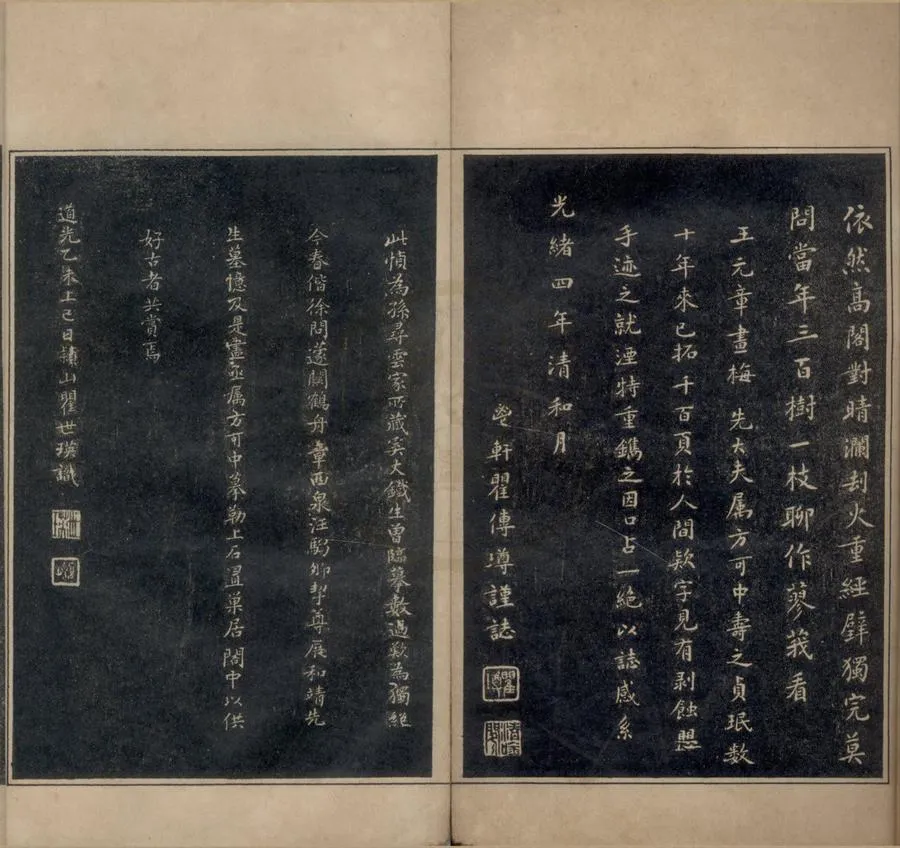 依然高閣對晴瀾刦火重經壁獨完莫
問當年三百樹一枝聊作蓼莪看
王元章畫梅先大夫属方可中壽之貞珉数
十年來已拓千百頁於人間欵字見有剥蝕懇
手迹之就湮特重鐫之因口占一絕以誌感系
光緒四年清和月
軒瞿傳㙛謹誌
此幀為孫尋雲家所藏奚大鐵生曾臨摹數過歎為獨絕
今春偕徐問蘧關鶴舟章西泉汪騶卿挈尊展和靖先
生墓憶及是畫亟属方可中摹勒上石置巢居閣中以供
好古者共賞焉
道光乙未上巳日穎山瞿世瑛識